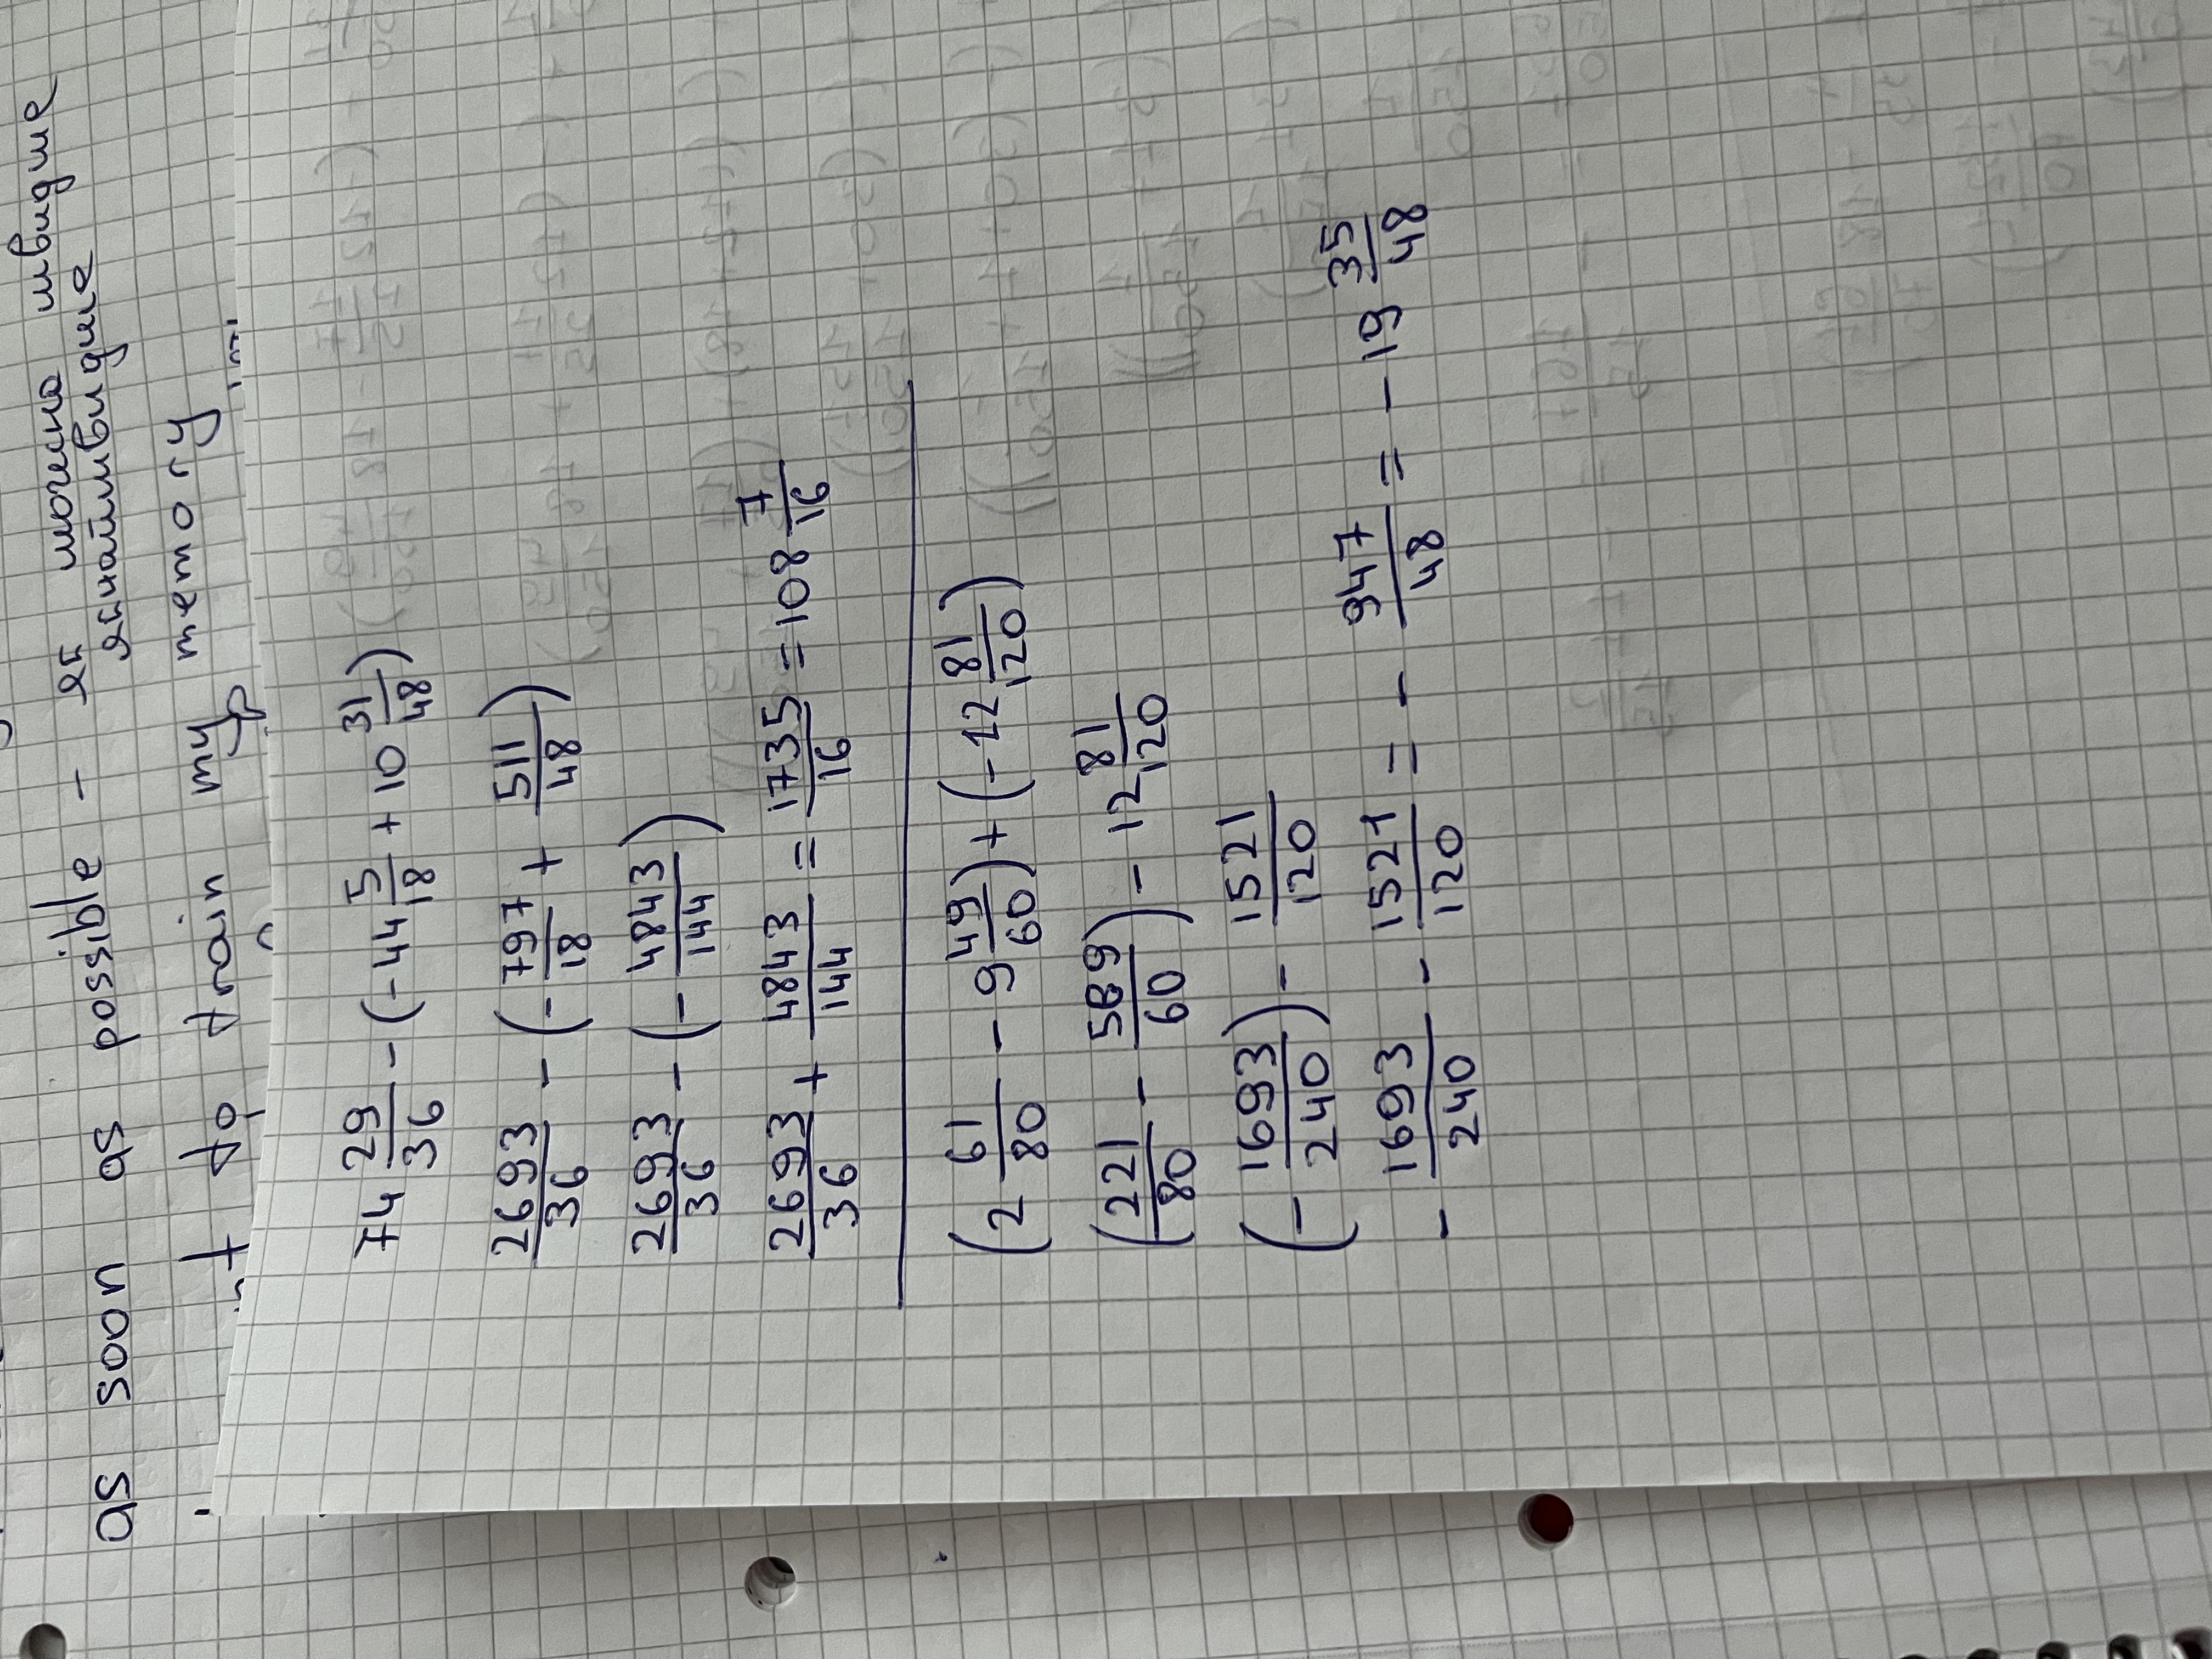 as soon as possible - як можна швидше
якнайшвидше
to train my memory
74 29/36 - (-44 5/18 + 10 31/48)
2693/36 - (-797/18 + 511/48)
2693/36 - (-4843/144)
2693/36 + 4843/144 = 1735/16 = 108 7/16
(2 61/80 - 9 49/60) + (-12 81/120)
(221/80 - 589/60) - 12 81/120
(-1693/240) - 1521/120
-1693/240 - 1521/120 = -947/48 = -19 35/48